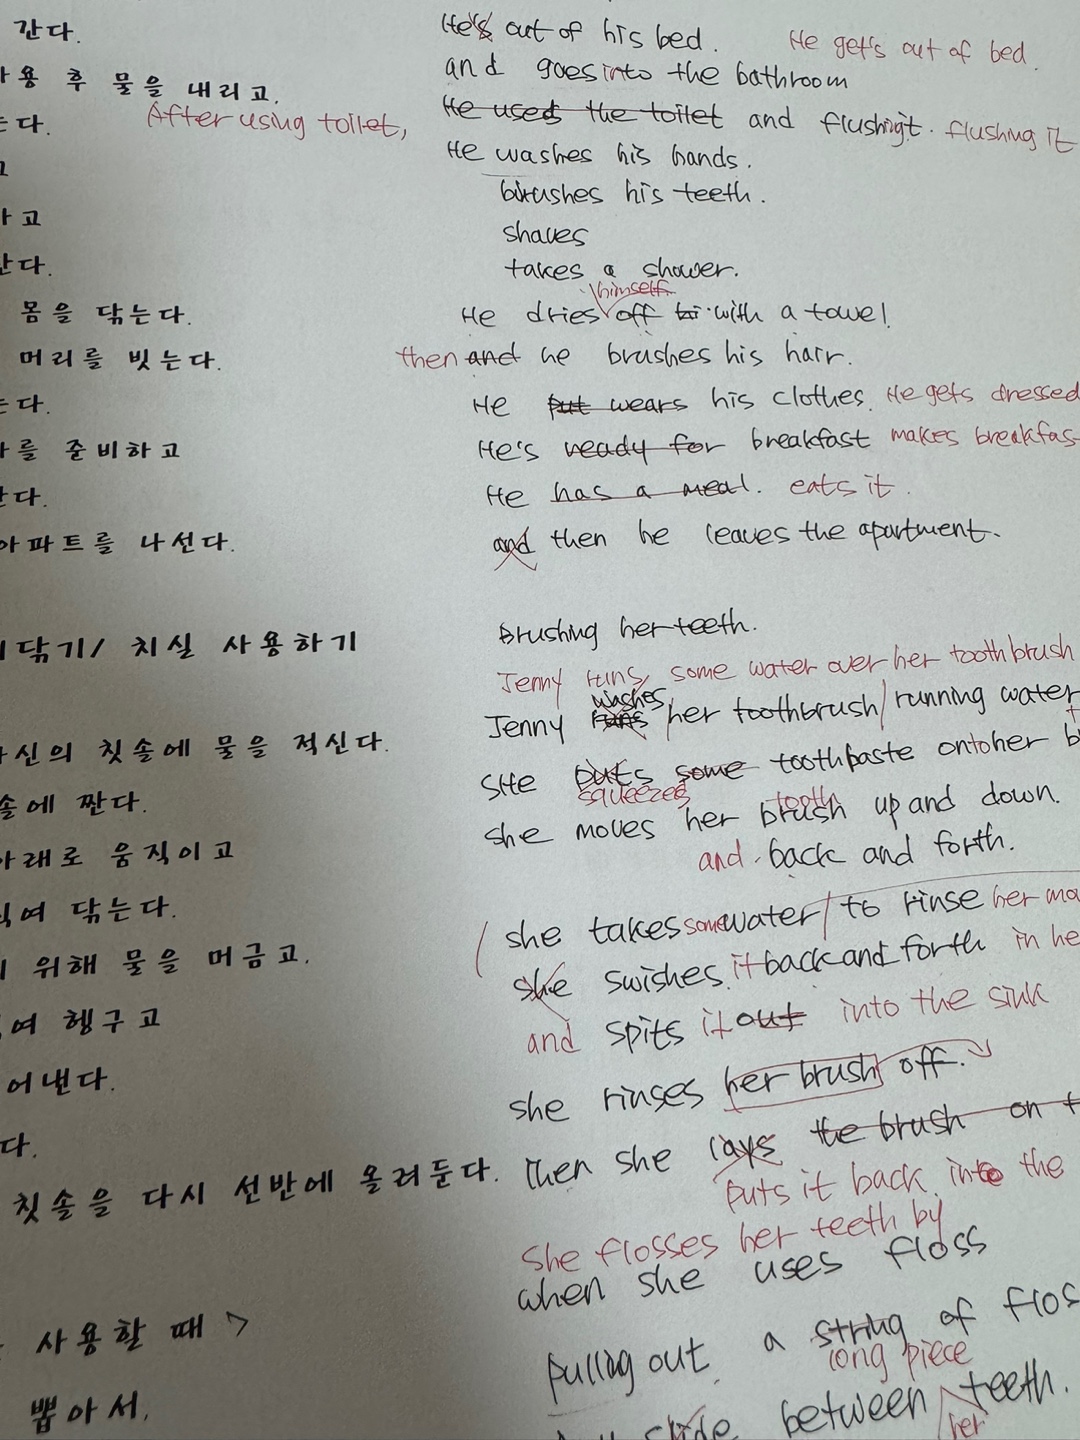 간다. He's out of his bed. He gets out of bed.
용 후 물을 내리고. and goes into the bathroom
After using toilet, He used the toilet and flushing it. flushing it
He washes his hands.
brushes his teeth.
하고 shaves
takes a shower.
himself
몸을 닦는다. He dries off with a towel.
머리를 빗는다. then and he brushes his hair.
He put wears his clothes. He gets dressed
를 준비하고 He's ready for breakfast makes breakfas
He has a meal. eats it.
아파트를 나선다. and then he leaves the apartment.
닦기/ 치실 사용하기 Brushing her teeth.
Jenny runs some water over her toothbrush
washes
자신의 칫솔에 물을 적신다. Jenny runs her toothbrush running water
솔에 짠다. She puts some toothpaste onto her b
squeezes tooth
아래로 움직이고 she moves her brush up and down.
and back and forth.
여 닦는다. she takes some water to rinse her mo
위해 물을 머금고. she swishes it back and forth in he
여 헹구고 and spits it out into the sink
어낸다. she rinses her brush off.
다. 
칫솔을 다시 선반에 올려둔다. Then she lays the brush on t
puts it back into the
She flosses her teeth by
when she uses floss
사용할 때 >
pulling out a string of flos
long piece
뽑아서, slide between teeth.
her